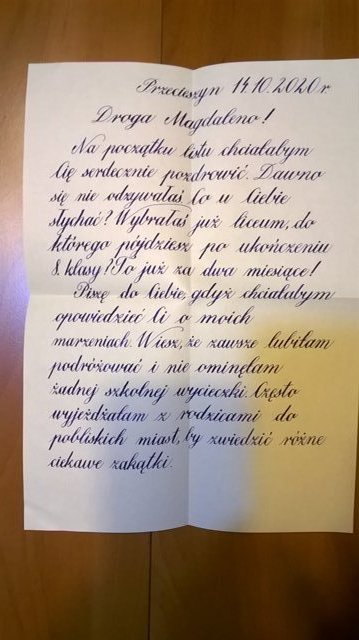 Przecieszyn 14.10.2020r
Droga Magdaleno!
Na początku listu chciałabym
Cię serdecznie pozdrowić. Dawno
się nie odzywałaś Co u Ciebie
słychać? Wybrałaś już liceum, do
którego pójdziesz po ukończeniu
8. klasy? To już za dwa miesiące!
Piszę do Ciebie, gdyż chciałabym
opowiedzieć Ci o moich
marzeniach. Wiesz, że zawsze lubiłam
podróżować i nie ominęłam
żadnej szkolnej wycieczki. Często
wyjeżdżałam z rodzicami do
pobliskich miast, by zwiedzić różne
ciekawe zakątki.